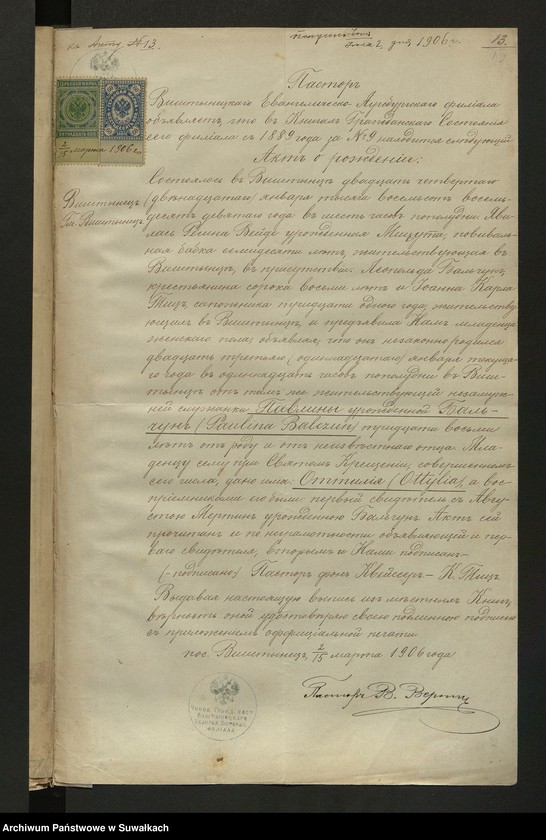 къ Акту № 13.
Іюля 2 дня 1906 г.
13.
2/15 марта 1906 г.
Пасторъ
Виштынецкаго Евангелическо-Аугсбургскаго филіала
объявляетъ, что въ Книгахъ Гражданскаго Состоянія
сего филіала съ 1889 года за № 9 находится слѣдующій
Актъ о рожденіи:
Виштынецъ
Гм. Виштынецъ
Состоялось въ Виштынцѣ двадцать четвертаго
(двѣнадцатаго) января тысяча восемьсотъ восемь-
десятъ девятаго года въ шесть часовъ пополудни. Яви-
лась Регина Вейде урожденная Мицута, повиваль-
ная бабка семидесяти лѣтъ, жительствующая въ
Виштынцѣ, въ присутствіи: Леопольда Бальчун,
крестьянина сорока восьми лѣтъ и Іоанна Карла
Тицъ сапожника тридцати одного года, жительству-
ющихъ въ Виштынцѣ, и предъявила Намъ младенца
женскаго пола, объявляя, что онъ незаконно родился
двадцать третьяго (одиннадцатаго) января текуща-
го года въ одиннадцать часовъ пополудни въ Виш-
тынцѣ отъ тамъ же жительствующей незамуж-
ней служанки Павлины урожденной Баль-
чунъ (Paulina Balczun) тридцати восьми
лѣтъ отъ роду и отъ неизвѣстнаго отца. Мла-
денцу сему при Святомъ Крещеніи, совершенномъ
сего числа, дано имя: Оттилія (Ottylia), а вос-
пріемниками его были: первый свидѣтель съ Авгу-
стою Мертинъ урожденною Бальчунъ. Актъ сей
прочитанъ и по неграмотности объявляющей и пер-
ваго свидѣтеля, вторымъ и Нами подписанъ.
(-подписано:) Пасторъ фонъ Квейссеръ - К. Тицъ
Выдавая настоящую выпись изъ мѣстныхъ Книгъ,
вѣрность оной удостовѣряю своею подлинною подписью
съ приложеніемъ оффиціальной печати.
пос. Виштынецъ, 2/15 марта 1906 года
Пасторъ В.
Archiwum Państwowe w Suwałkach